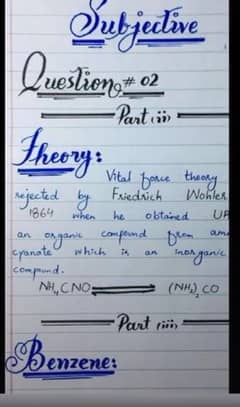 Subjective
Question # 02
Part (ii)
Theory:
Vital force theory
rejected by Friedrich Wohler
1864 when he obtained
an organic compound from
cyanate which is an inorganic
compound.
NH4CNO ⇌ (NH2)2CO
Part (iii)
Benzene: